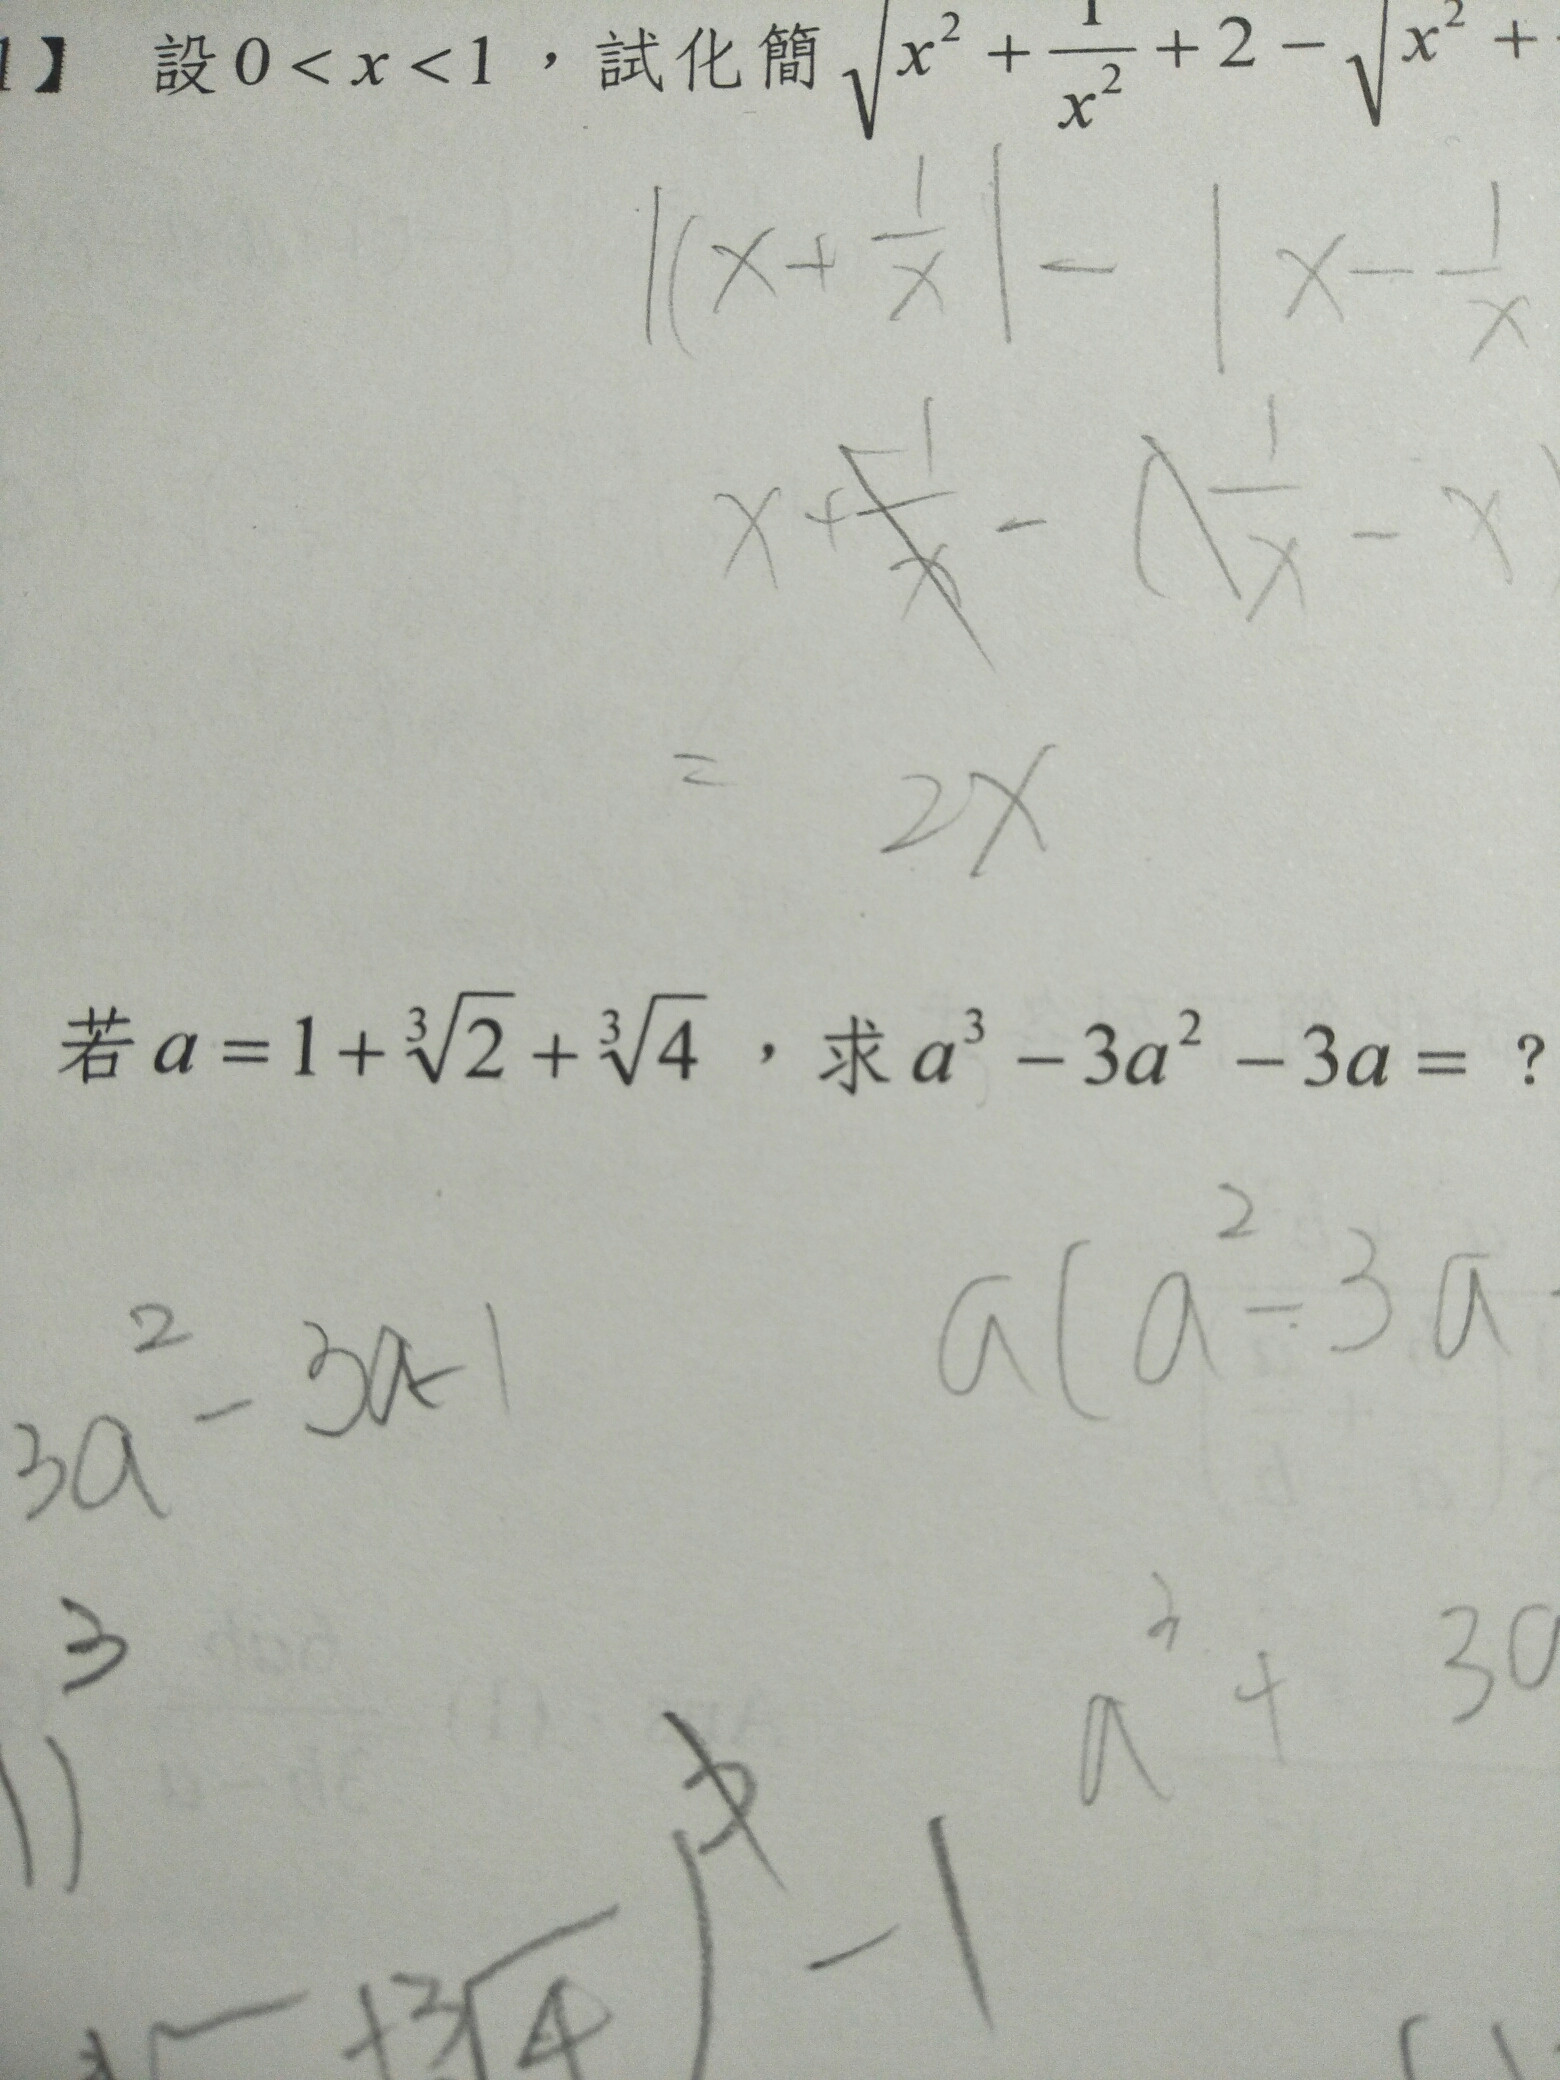 1】 設 0 < x < 1 ，試化簡 √(x² + 1/x² + 2) - √(x² +
|(x + 1/x| - |x - 1/x
x + 1/x - (1/x - x)
= 2x
若 a = 1 + ³√2 + ³√4 ，求 a³ - 3a² - 3a = ?
a(a² - 3a
3a² - 3a - 1
3
a³ + 3a
1)
³√ + ³√4) - 1